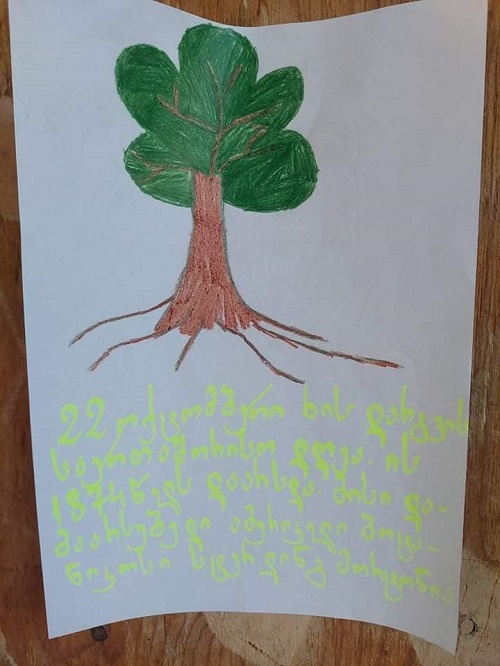 22 ოქტომბერი ხის დარგვის
საერთაშორისო დღეა. ის
1874 წელს დაარსდა. მისი და-
მაარსებელი ამერიკელი ბოტა-
ნიკოსი სტერლინგ მორტონია